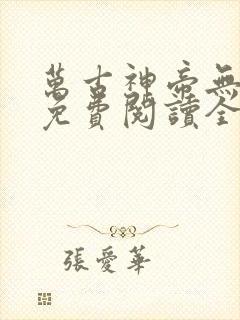 萬古神帝無
免費閱讀全
張愛華